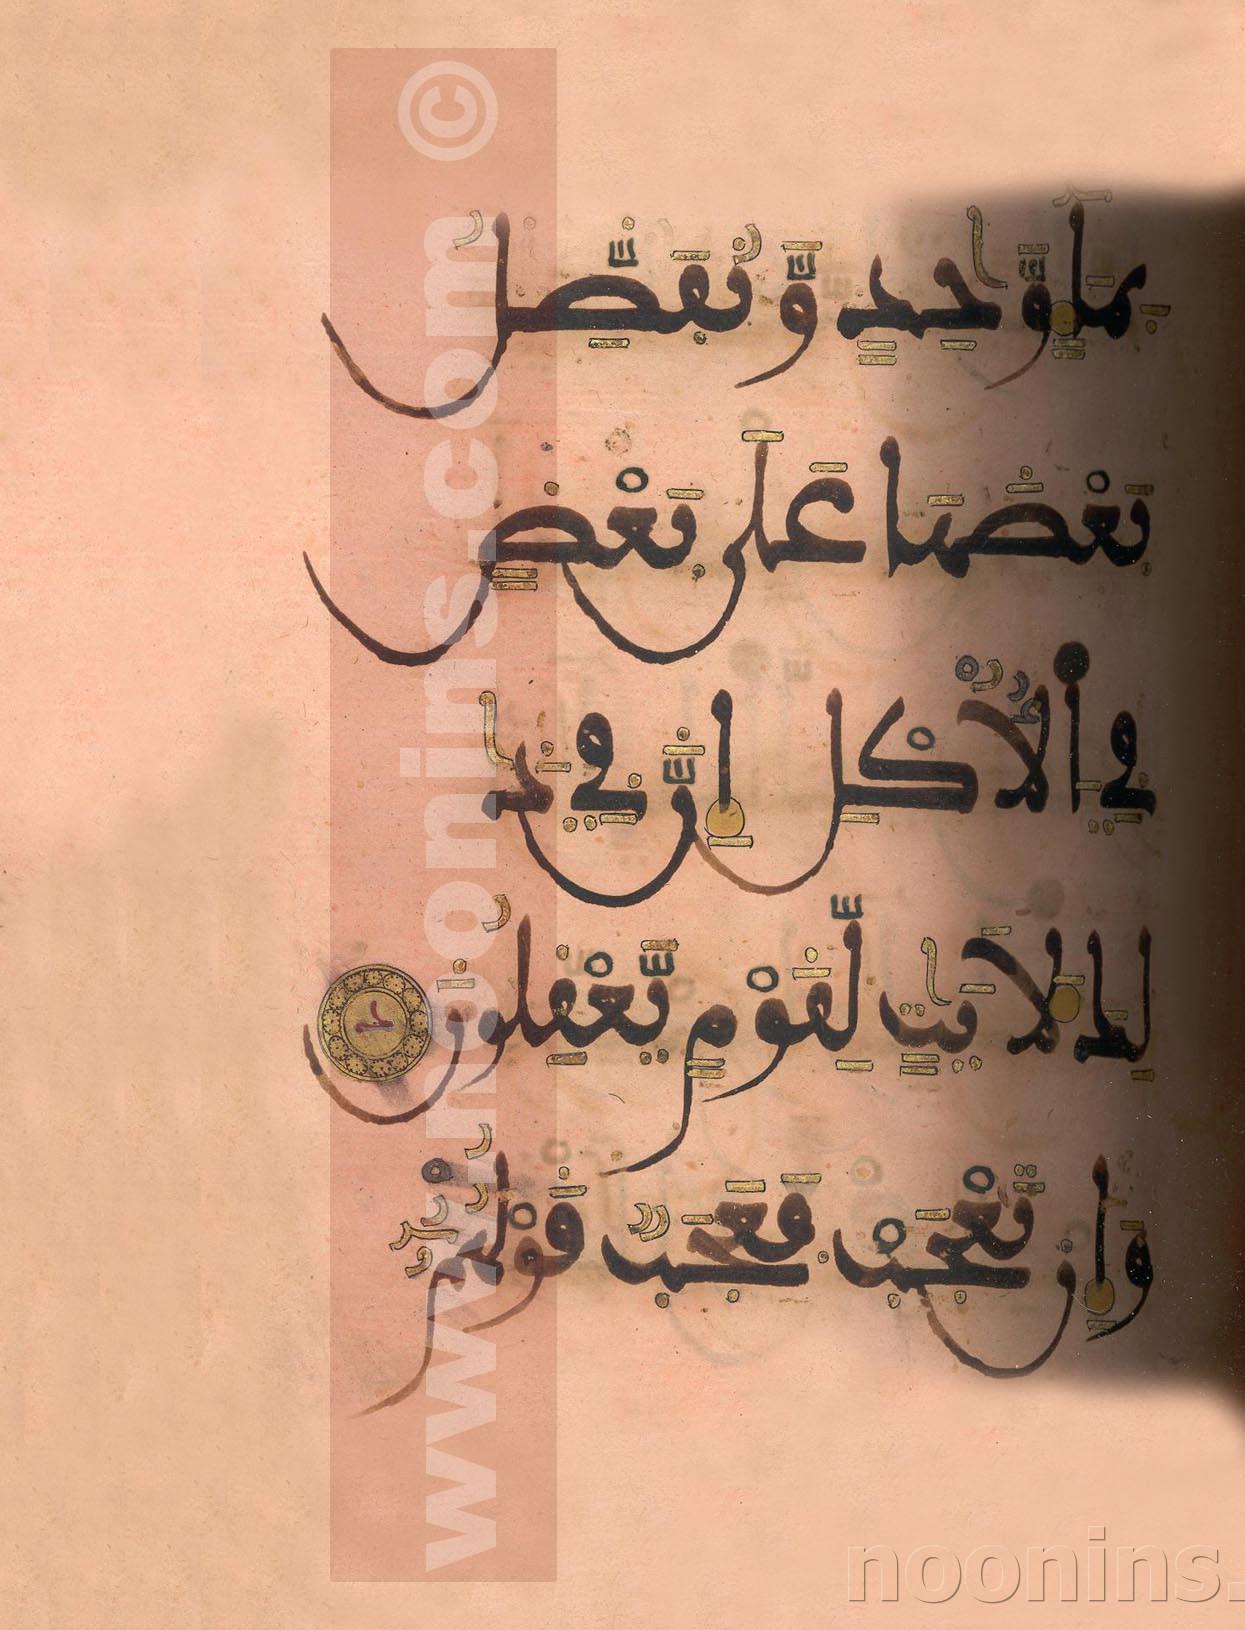 بِمَآءٍ وَّٰحِدٍ وَّنُفَضِّلُ
بَعْضَهَا عَلَىٰ بَعْضٍ
فِي اَ۬لُاكْلِ إِنَّ فِي ذَٰ
لِكَ لَأَيَٰتٍ لِّقَوْمٍ يَّعْقِلُونَ
وَإِن تَعْجَبْ فَعَجَبٌ قَوْلُهُمُۥٓ
www.noonins.com ©
noonins.